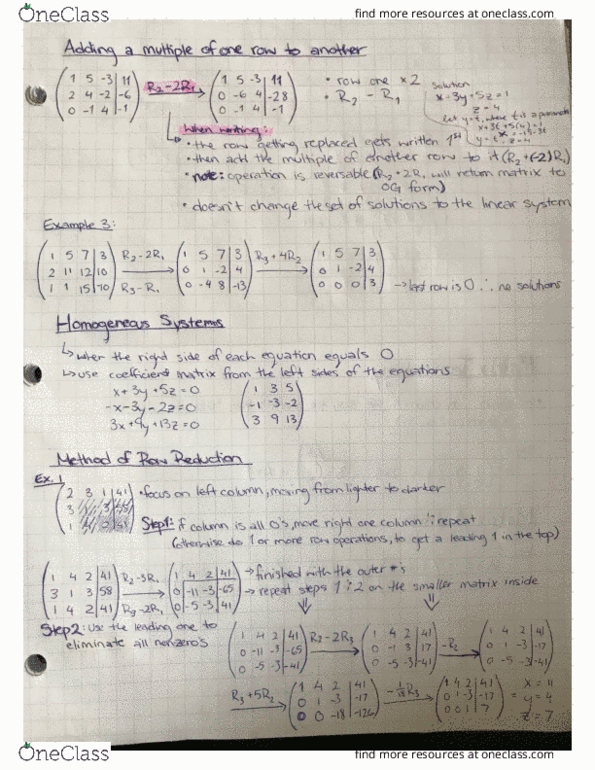 OneClass
find more resources at oneclass.com
Adding a multiple of one row to another
( 1 5 -3 | 11 ) R2-2R1 → ( 1 5 -3 | 11 )
( 2 4 -2 | -6 ) ( 0 -6 4 | -28 )
( 0 -1 4 | -1 ) ( 0 -1 4 | -1 )
• row one ×2
• R2 - R1
Solution
x+3y+5z=1
z=4
let y=t, where t is a parameter
x+3t+5(4)=1
y=t, z=4
When writing:
• the row getting replaced gets written 1st
• then add the multiple of another row to it (R2+(-2)R1)
• note: operation is reversable (R2+2R1 will return matrix to
OG form)
• doesn't change the set of solutions to the linear system
Example 3:
( 1 5 7 | 3 ) R2-2R1 → ( 1 5 7 | 3 ) R3+4R2 → ( 1 5 7 | 3 )
( 2 11 12 | 10 ) R3-R1 ( 0 1 -2 | 4 ) ( 0 1 -2 | 4 )
( 1 1 15 | -10 ) ( 0 -4 8 | -13 ) ( 0 0 0 | 3 ) → last row is 0 ∴ no solutions
Homogeneous Systems
↳ when the right side of each equation equals 0
↳ use coefficient matrix from the left sides of the equations
x+3y+5z=0 ( 1 3 5 )
-x-3y-2z=0 ( -1 -3 -2 )
3x+9y+13z=0 ( 3 9 13 )
Method of Row Reduction
Ex. 1
( 2 3 1 | 41 ) • focus on left column, moving from lighter to darker
Step1: if column is all 0's, move right one column & repeat
(otherwise do 1 or more row operations, to get a leading 1 in the top)
( 1 4 2 | 41 ) R2-3R1 → ( 1 4 2 | 41 ) → finished with the outer #'s
( 3 1 3 | 58 ) ( 0 -11 -3 | -65 ) → repeat steps 1 & 2 on the smaller matrix inside
( 1 4 2 | 41 ) R3-2R1 ( 0 -5 -3 | 41 )
Step2: Use the leading one to
eliminate all nonzero's
( 1 4 2 | 41 ) R2-2R3 → ( 1 4 2 | 41 ) -R2 → ( 1 4 2 | 41 )
( 0 -11 -3 | -65 ) ( 0 -1 3 | 17 ) ( 0 1 -3 | -17 )
( 0 -5 -3 | -41 ) ( 0 -5 -3 | -41 ) ( 0 -5 -3 | -41 )
R3+5R2 → ( 1 4 2 | 41 ) -1/18 R3 → ( 1 4 2 | 41 ) x = 11
( 0 1 -3 | -17 ) ( 0 1 -3 | -17 ) = y = 4
( 0 0 -18 | -126 ) ( 0 0 1 | 7 ) z = 7
OneClass
find more resources at oneclass.com